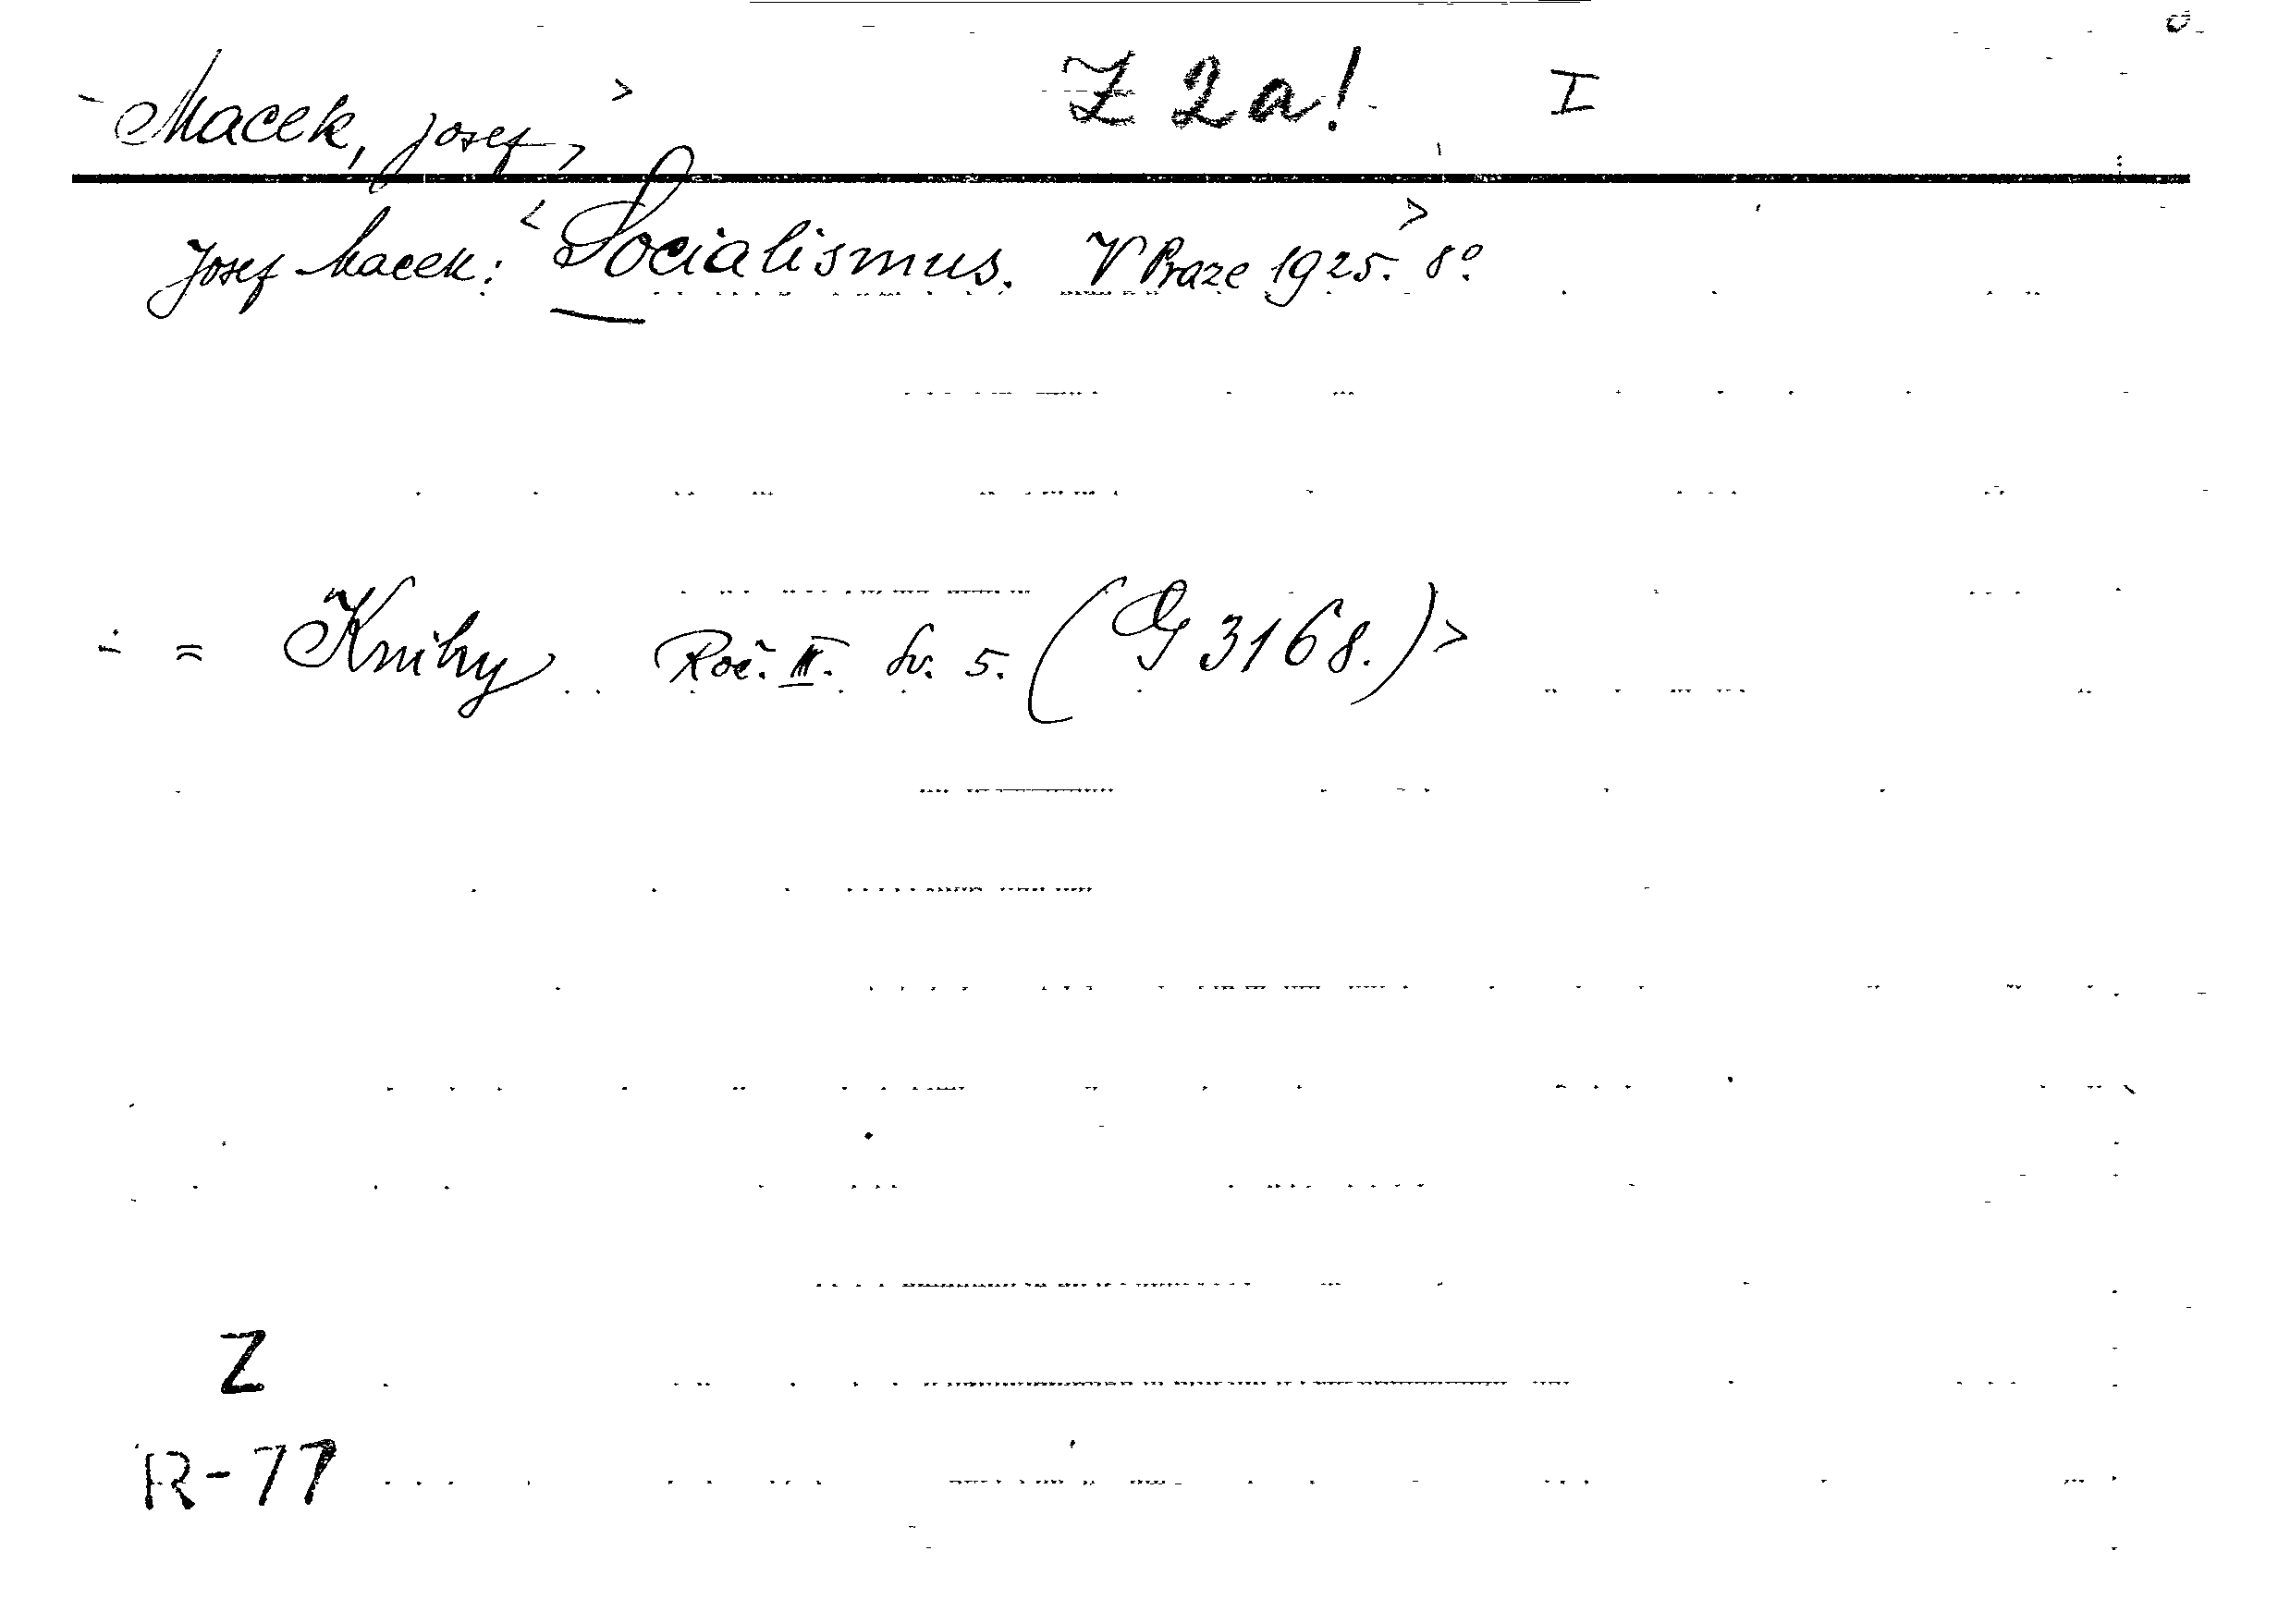 Macek, Josef, > Z 2a! I
Josef Macek: < Socialismus. V Praze 1925. > 8°.
= Knihy Roč. II. Sv. 5. (G 3168.) >
Z
R-77